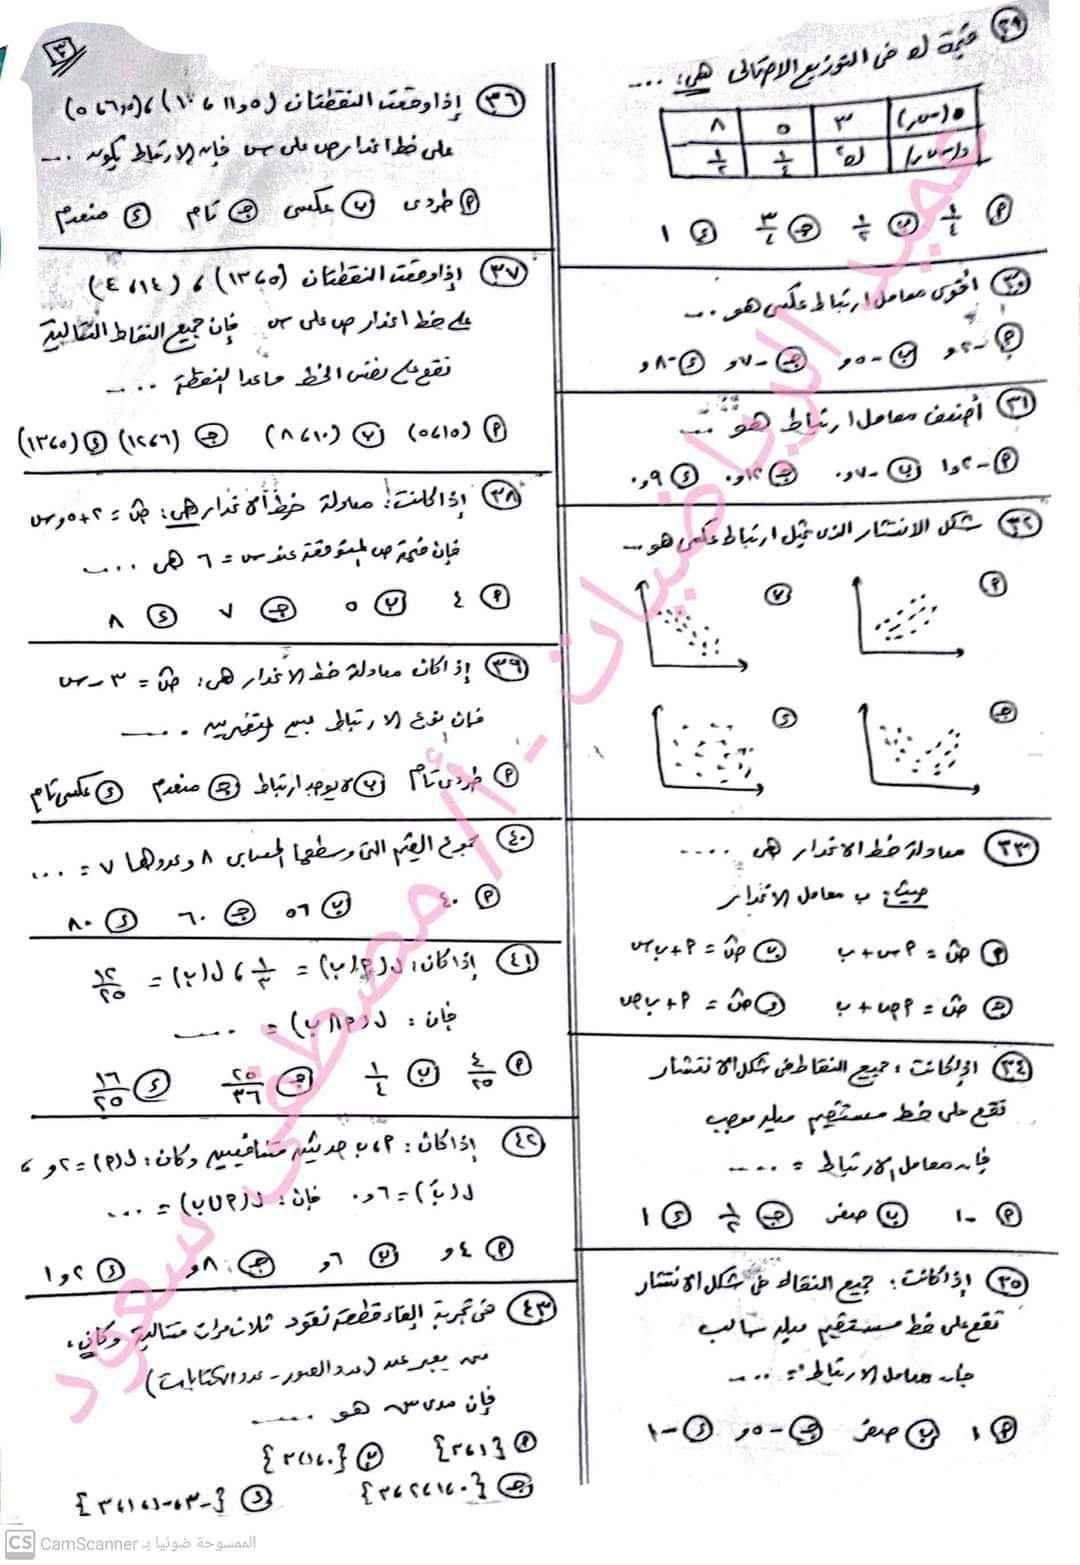 ٣
٢٩ قيمة ك فى التوزيع الاحتمالى هى: ....
(سر) ٣ ٥ ٨
د(سر) ك ١/٤ ١/٢
أ ١/٤ ب ١/٢ جـ ٣/٤ د ١
٣٠ أقوى معامل ارتباط عكسى هو ....
أ -٢و ب -٥و جـ -٧و د -٨و
٣١ أضعف معامل ارتباط هو ....
أ -٢و١ ب -٧و٠ جـ ١٢و٠ د ٩و٠
٣٢ شكل الانتشار الذى يمثل ارتباط عكسى هو ....
أ ب
جـ د
٣٣ معادلة خط الانحدار هى ....
حيث: ب معامل الانحدار
أ صَ = أس + ب ب صَ = أ + ب س
جـ صَ = أص + ب د صَ = أ + ب ص
٣٤ إذا كانت: جميع النقاط فى شكل الانتشار
تقع على خط مستقيم ميله موجب
فإن معامل الارتباط = ....
أ -١ ب صفر جـ ١/٢ د ١
٣٥ إذا كانت: جميع النقاط فى شكل الانتشار
تقع على خط مستقيم ميله سالب
فإن معامل الارتباط = ....
أ ١ ب صفر جـ -٥و د -١
٣٦ إذا وقعت النقطتان
على خط انحدار ص على س فإن الارتباط يكون ....
أ طردى ب عكسى جـ تام د منعدم
٣٧ إذا وقعت النقطتان (٥، ١٣) ، (١٤، ٤)
على خط انحدار ص على س فإن جميع النقاط التالية
تقع على نفس الخط ماعدا النقطة ....
أ (١٥، ٥) ب (١٠، ٨) جـ (٦، ١٢) د (٥، ١٣)
٣٨ إذا كانت: معادلة خط الانحدار هى: صَ = ٢ + ٥و س
فإن قيمة ص المتوقعة عند س = ٦ هى ....
أ ٤ ب ٥ جـ ٧ د ٨
٣٩ إذا كان معادلة خط الانحدار هى: صَ = ٣ - س
فإن نوع الارتباط بين المتغيرين ....
أ طردى تام ب لا يوجد ارتباط جـ منعدم د عكسى تام
٤٠ مجموع القيم التى وسطها الحسابى ٨ وعددها ٧ = ....
أ ٤٠ ب ٥٦ جـ ٦٠ د ٨٠
٤١ إذا كان: ل(أ|ب) = ١/٣ ، ل(ب) = ١٢/٢٥
فإن: ل(أ∩ب) = ....
أ ٤/٢٥ ب ١/٤ جـ ٢٥/٣٦ د ١٦/٢٥
٤٢ إذا كان: أ، ب حدثين متنافيين وكان: ل(أ) = ٢و ،
ل(بَ) = ٦و٠ فإن: ل(أ∪ب) = ....
أ ٤و ب ٦و جـ ٨و د ٢و١
٤٣ فى تجربة إلقاء قطعة نقود ثلاث مرات متتالية وكان،
س يعبر عند (عدد الصور - عدد الكتابات)
فإن مدى س هو ....
أ {١، ٣} ب {٠، ١، ٣}
جـ {٠، ١، ٢، ٣} د {-٣، -١، ١، ٣}
عميد الرياضيات - أ/ مصطفى سعود
CS CamScanner الممسوحة ضوئيا بـ